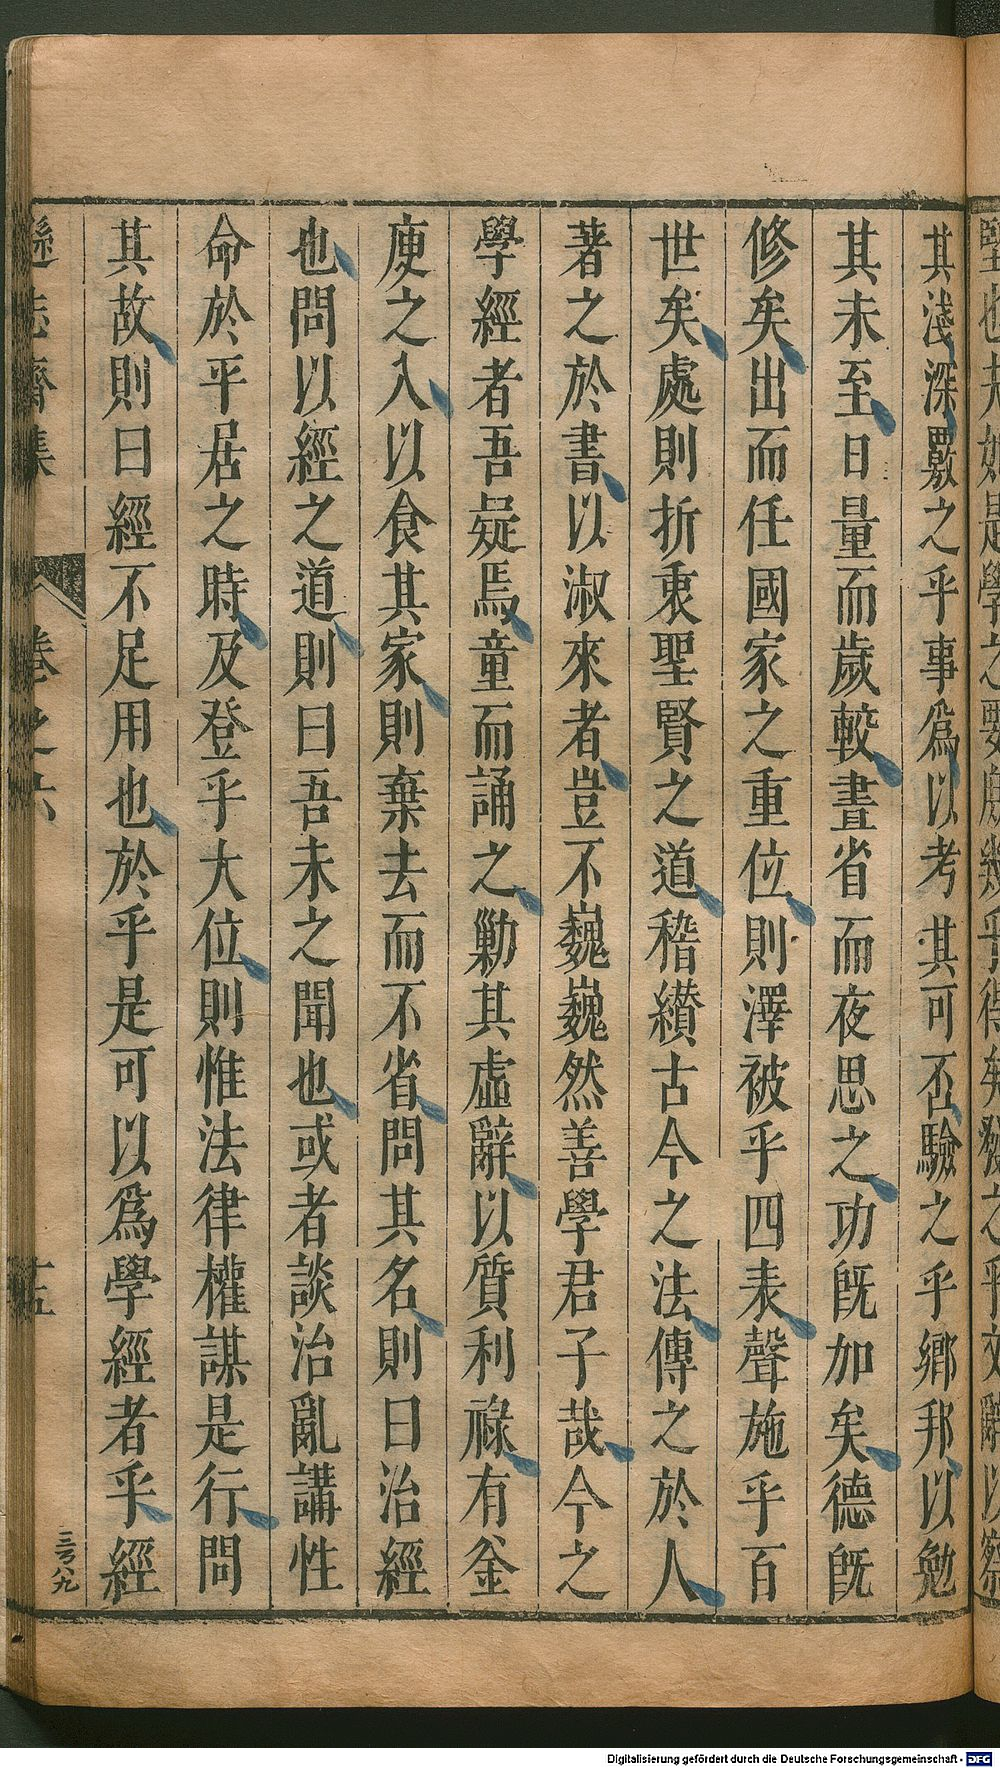 其淺深覈之乎事爲以考其可否驗之乎鄉邦以勉
其未至日量而歲較晝省而夜思之功既加矣德既
修矣出而任國家之重位則澤被乎四表聲施乎百
世矣處則折衷聖賢之道稽纉古今之法傳之於人
著之於書以淑來者豈不巍巍然善學君子哉今之
學經者吾疑焉童而誦之勦其虛辭以質利祿有釜
庾之入以食其家則棄去而不省問其名則曰治經
也問以經之道則曰吾未之聞也或者談治亂講性
命於平居之時及登乎大位則惟法律權謀是行問
其故則曰經不足用也於乎是可以爲學經者乎經
遜志齋集 卷之六 十五
Digitalisierung gefördert durch die Deutsche Forschungsgemeinschaft - DFG